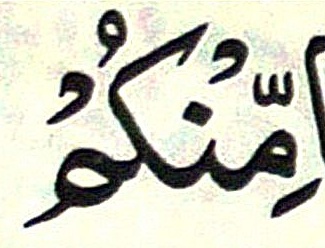 مِّنْكُمْ